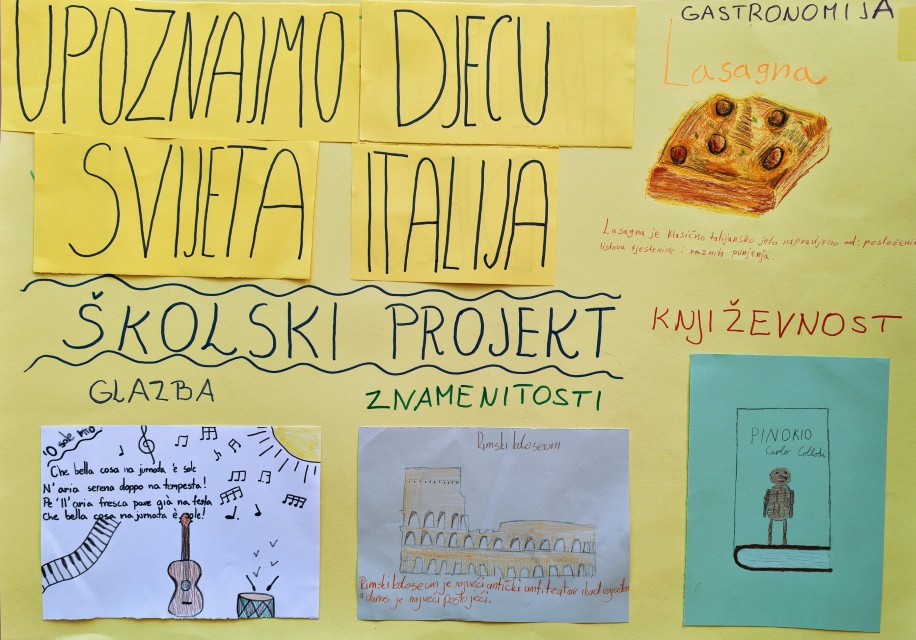 UPOZNAJMO DJECU
SVIJETA ITALIJA
ŠKOLSKI PROJEKT
GASTRONOMIJA
Lasagna
Lasagna je klasično talijansko jelo napravljeno od: posloženih
listova tjestenine i raznih punjenja.
GLAZBA
'O sole mio
Che bella cosa na jurnada 'e sole
N'aria serena doppo na tempesta!
Pe 'll'aria fresca pare già na festa
Che bella cosa na jurnata è sole!
ZNAMENITOSTI
Rimski koloseum
Rimski koloseum je najveći antički amfiteatar ikad izgrađen
a danas je najveći postojeći.
KNJIŽEVNOST
PINOKIO
Carlo Collodi